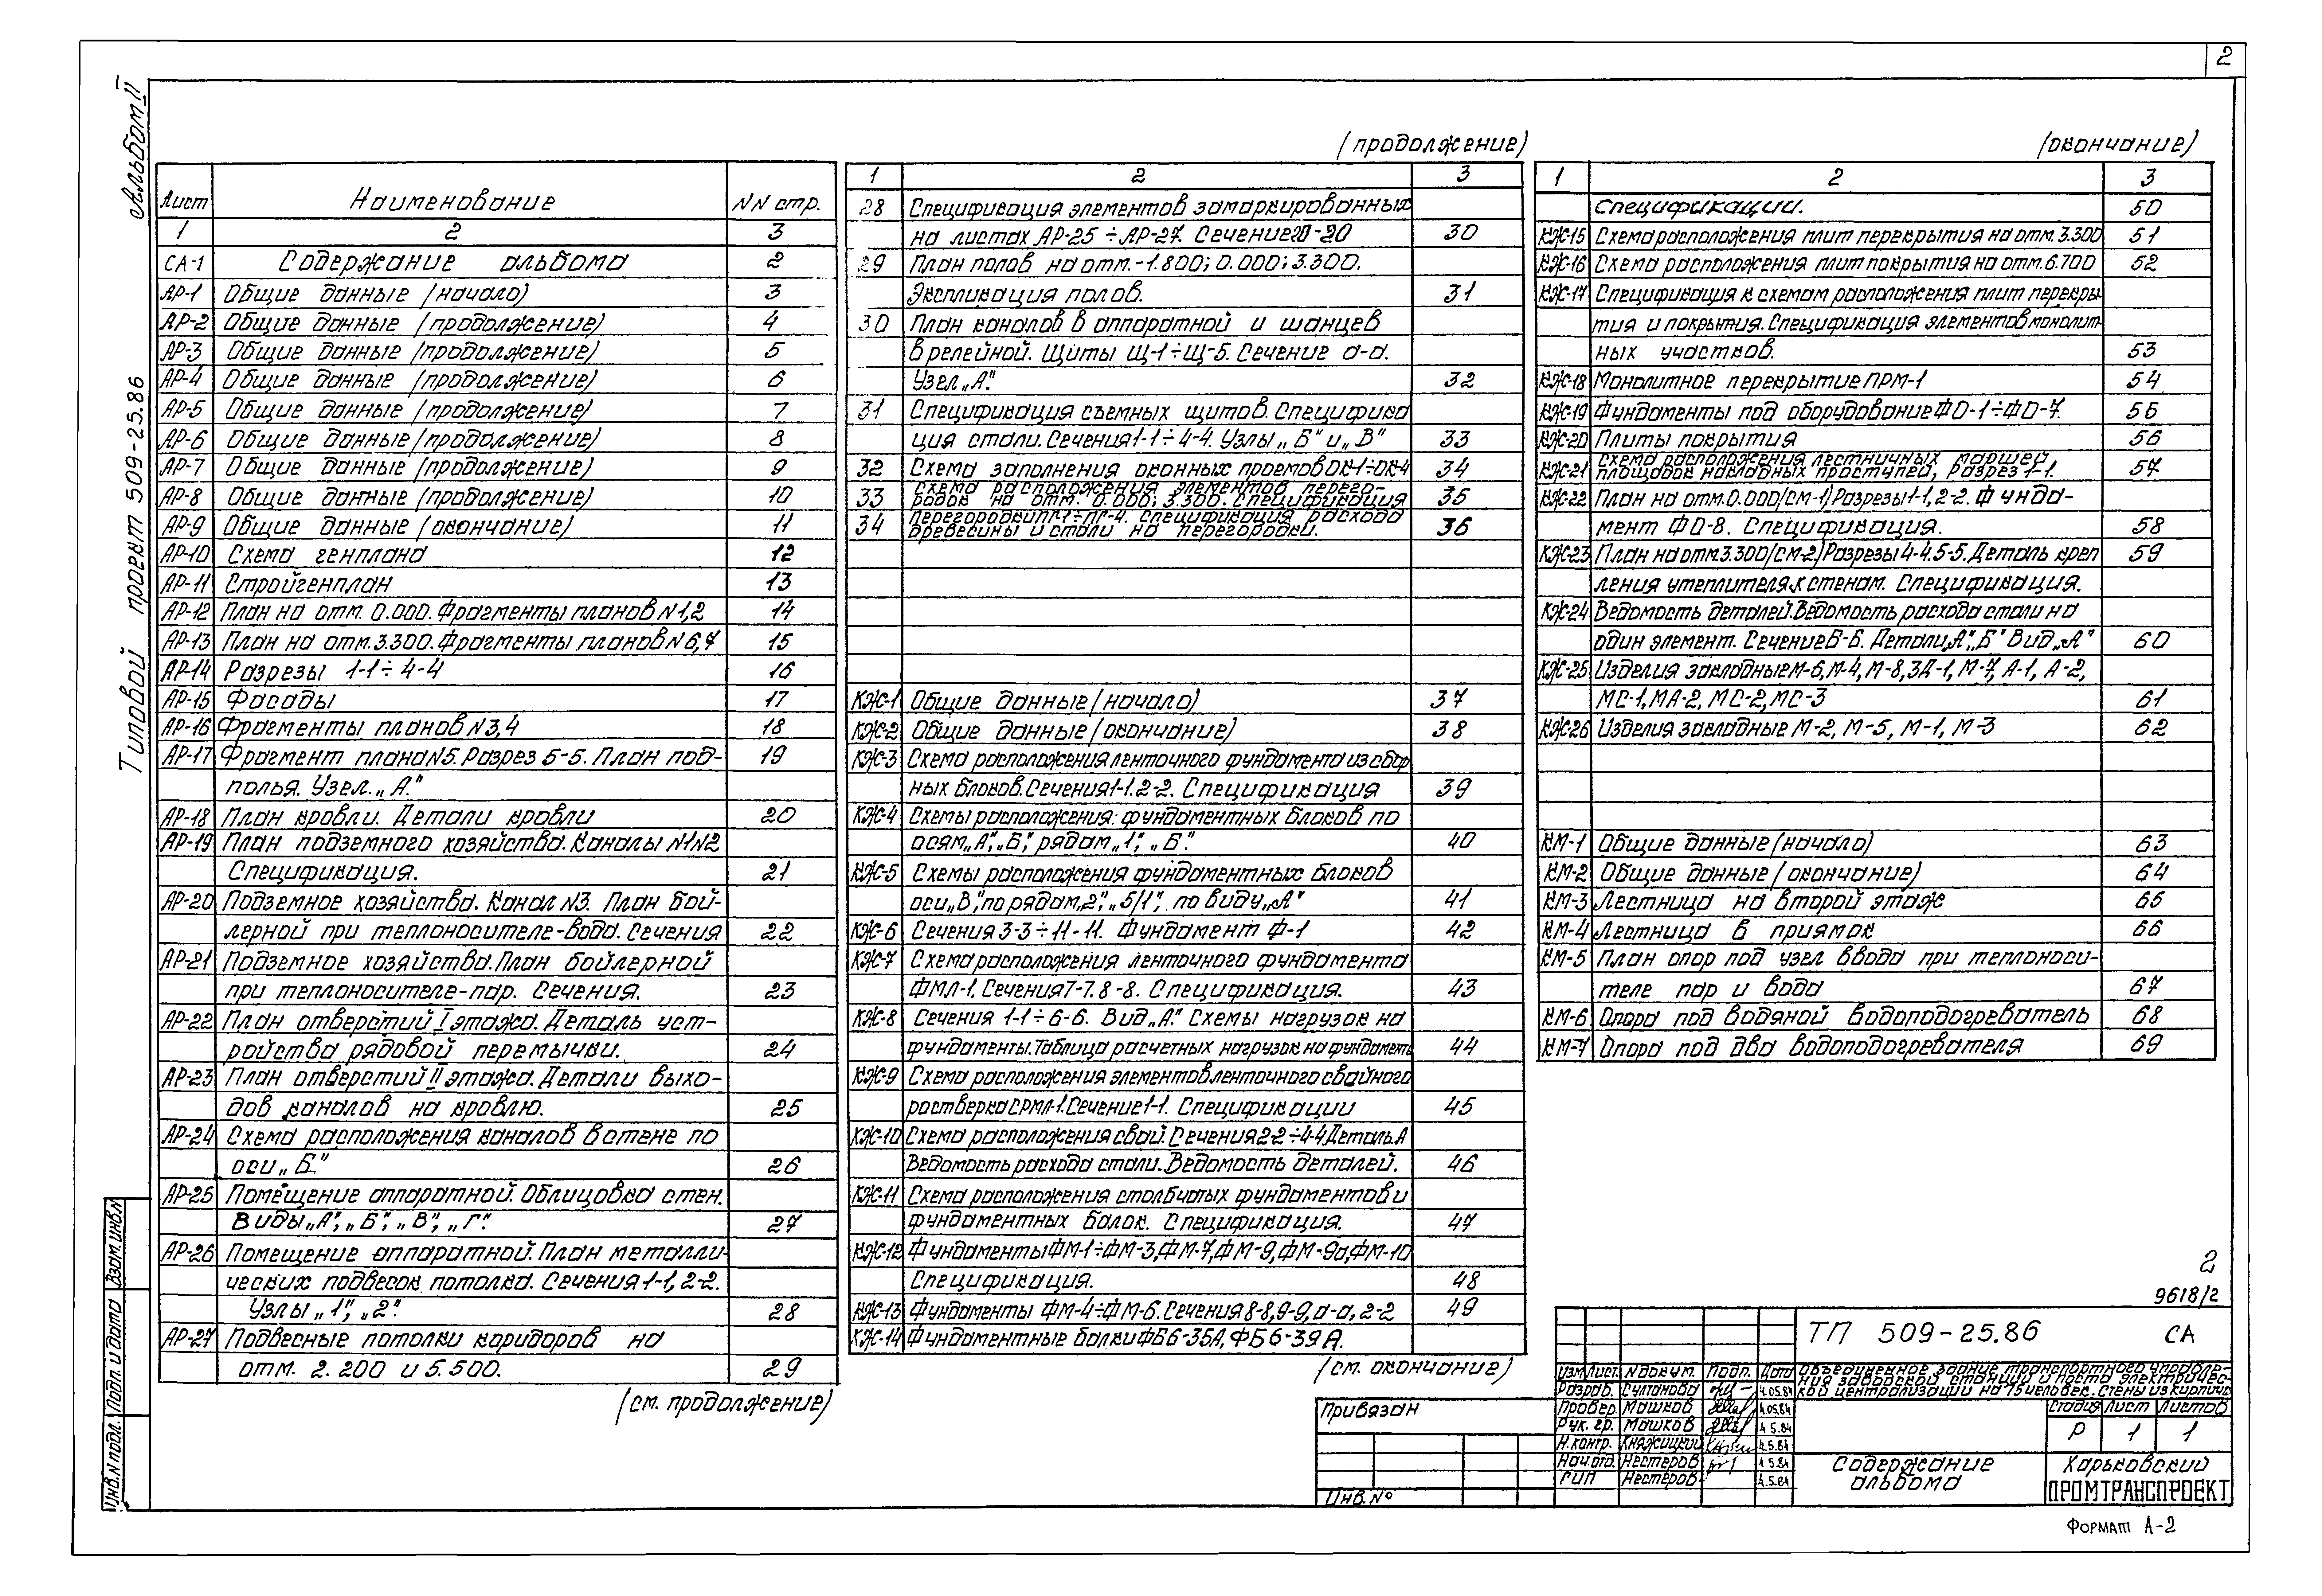 2
Альбом II
Типовой проект 509-25.86
Лист Наименование NN стр.
1 2 3
СА-1 Содержание альбома 2
АР-1 Общие данные (начало) 3
АР-2 Общие данные (продолжение) 4
АР-3 Общие данные (продолжение) 5
АР-4 Общие данные (продолжение) 6
АР-5 Общие данные (продолжение) 7
АР-6 Общие данные (продолжение) 8
АР-7 Общие данные (продолжение) 9
АР-8 Общие данные (продолжение) 10
АР-9 Общие данные (окончание) 11
АР-10 Схема генплана 12
АР-11 Стройгенплан 13
АР-12 План на отм. 0.000. Фрагменты планов N1,2 14
АР-13 План на отм. 3.300. Фрагменты планов N6,7 15
АР-14 Разрезы 1-1÷4-4 16
АР-15 Фасады 17
АР-16 Фрагменты планов N3,4 18
АР-17 Фрагмент плана N5. Разрез 5-5. План под- 19
полья. Узел „А".
АР-18 План кровли. Детали кровли 20
АР-19 План подземного хозяйства. Каналы N1N2
Спецификация. 21
АР-20 Подземное хозяйства. Канал N3. План бой-
лерной при теплоносителе-вода. Сечения 22
АР-21 Подземное хозяйства. План бойлерной
при теплоносителе-пар. Сечения. 23
АР-22 План отверстий I этажа. Деталь уст-
ройства рядовой перемычки. 24
АР-23 План отверстий II этажа. Детали выхо-
дов каналов на кровлю. 25
АР-24 Схема расположения каналов в стене по
оси „Б." 26
АР-25 Помещение аппаратной. Облицовка стен.
Виды „А", „Б", „В", „Г". 27
АР-26 Помещение аппаратной. План металли-
ческих подвесок потолка. Сечения 1-1, 2-2.
Узлы „1", „2". 28
АР-27 Подвесные потолки коридоров на
отм. 2.200 и 5.500. 29
(см. продолжение)
(продолжение)
1 2 3
28 Спецификация элементов замаркированных
на листах АР-25÷АР-27. Сечение 20-20 30
29 План полов на отм. -1.800; 0.000; 3.300.
Экспликация полов. 31
30 План каналов в аппаратной и шанцев
в релейной. Щиты Щ-1÷Щ-5. Сечение а-а.
Узел „А". 32
31 Спецификация съемных щитов. Специфика
ция стали. Сечения 1-1÷4-4. Узлы „Б" и „В" 33
32 Схема заполнения оконных проемов ОК-1÷ОК-4 34
33 Схема расположения элементов перего-
родок на отм. 0.000; 3.300. Спецификация 35
34 Перегородки ПГ-1÷ПГ-4. Спецификация расхода
древесины и стали на перегородки. 36
КЖ-1 Общие данные (начало) 37
КЖ-2 Общие данные (окончание) 38
КЖ-3 Схема расположения ленточного фундамента из сбор
ных блоков. Сечения 1-1. 2-2. Спецификация 39
КЖ-4 Схемы расположения: фундаментных блоков по
осям „А", „Б", рядам „1", „Б". 40
КЖ-5 Схемы расположения фундаментных блоков
оси „В", по рядам „2", „5/1", по виду „А" 41
КЖ-6 Сечения 3-3÷11-11. Фундамент Ф-1 42
КЖ-7 Схема расположения ленточного фундамента
ФМЛ-1. Сечения 7-7. 8-8. Спецификация. 43
КЖ-8 Сечения 1-1÷6-6. Вид „А". Схемы нагрузок на
фундаменты. Таблица расчетных нагрузок на фундаменты 44
КЖ-9 Схема расположения элементов ленточного свайного
ростверка СРМЛ-1. Сечение 1-1. Спецификации 45
КЖ-10 Схема расположения свай. Сечения 2-2÷4-4. Деталь А
Ведомость расхода стали. Ведомость деталей. 46
КЖ-11 Схема расположения столбчатых фундаментов и
фундаментных балок. Спецификация. 47
КЖ-12 Фундаменты ФМ-1÷ФМ-3, ФМ-7, ФМ-9, ФМ-9а, ФМ-10
Спецификация. 48
КЖ-13 Фундаменты ФМ-4÷ФМ-6. Сечения 8-8, 9-9, а-а, 2-2 49
КЖ-14 Фундаментные балки ФБ6-35А, ФБ6-39А.
(см. окончание)
(окончание)
1 2 3
спецификации. 50
КЖ-15 Схема расположения плит перекрытия на отм. 3.300 51
КЖ-16 Схема расположения плит покрытия на отм. 6.700 52
КЖ-17 Спецификация к схемам расположения плит перекры-
тия и покрытия. Спецификация элементов монолит-
ных участков. 53
КЖ-18 Монолитное перекрытие ПРМ-1 54
КЖ-19 Фундаменты под оборудование ФО-1÷ФО-7. 55
КЖ-20 Плиты покрытия 56
КЖ-21 Схема расположения лестничных маршей
площадок накладных проступей, разрез 1-1. 57
КЖ-22 План на отм. 0.000/см-1/ Разрезы 1-1, 2-2. Фунда-
мент ФО-8. Спецификация. 58
КЖ-23 План на отм. 3.300/см-2/ Разрезы 4-4. 5-5. Деталь креп 59
ления утеплителя к стенам. Спецификация.
КЖ-24 Ведомость деталей. Ведомость расхода стали на
один элемент. Сечение Б-Б. Детали „А", „Б" Вид „А" 60
КЖ-25 Изделия закладные М-6, М-4, М-8, ЗД-1, М-7, А-1, А-2,
МС-1, МА-2, МС-2, МС-3 61
КЖ-26 Изделия закладные М-2, М-5, М-1, М-3 62
КМ-1 Общие данные (начало) 63
КМ-2 Общие данные (окончание) 64
КМ-3 Лестница на второй этаж 65
КМ-4 Лестница в приямок 66
КМ-5 План опор под узел ввода при теплоноси-
теле пар и вода 67
КМ-6 Опора под водяной водоподогреватель 68
КМ-7 Опора под два водоподогревателя 69
2
9618/2
ТП 509-25.86 СА
Изм. Лист. N докум. Подп. Дата
Разраб. Султанова 4.05.84
Провер. Машков 4.05.84
Рук. гр. Машков 4.5.84
Н.контр. Княжицкий 4.5.84
Нач.отд. Нестеров 4.5.84
ГИП Нестеров 4.5.84
Объединенное здание транспортного управле-
ния заводской станции и поста электричес-
кой централизации на 75 человек. Стены из кирпича
Стадия Лист Листов
Р 1 1
Содержание
альбома
Харьковский
ПРОМТРАНСПРОЕКТ
Привязан
Инв. №
Формат А-2
Взам. инв. N
Подп. и дата
Инв. N подл.